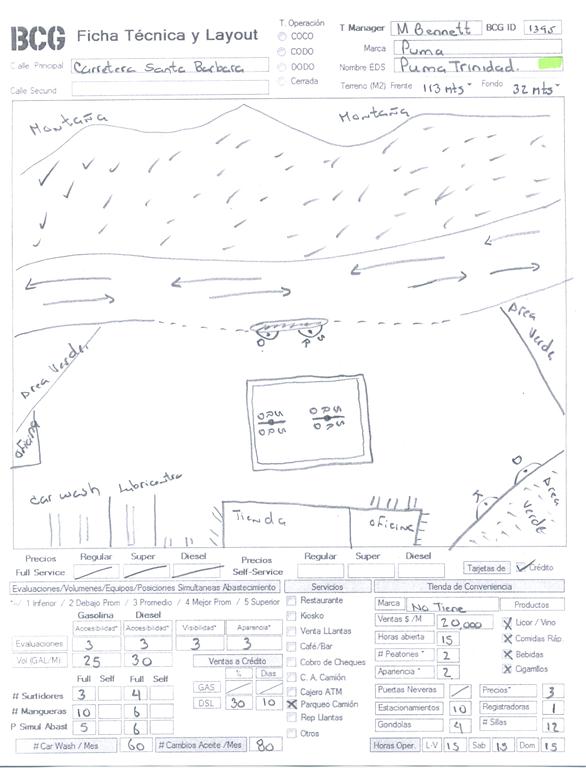 BCG Ficha Técnica y Layout
T. Operación
COCO
CODO
DODO
Cerrada
T Manager M Bennett BCG ID 1395
Marca Puma
Nombre EDS Puma Trinidad.
Terreno (M2) Frente 113 mts Fondo 32 mts
Calle Principal Carretera Santa Barbara
Calle Secund
Montaña Montaña
Area Verde Area Verde
O P S
oficina
S S
O P S O P S
O P S O P S
car wash Lubricentro
Tienda oficina
Area Verde
Precios Regular Super Diesel Precios Regular Super Diesel
Full Service Self-Service
Tarjetas de Crédito
Evaluaciones/Volumenes/Equipos/Posiciones Simultaneas Abastecimiento
1 Inferior / 2 Debajo Prom / 3 Promedio / 4 Mejor Prom / 5 Superior
Gasolina Diesel
Accesibilidad* Accesibilidad* Visibilidad* Aparencia*
Evaluaciones 3 3 3 3
Vol (GAL/M) 25 30
Ventas a Crédito
% Dias
GAS
DSL 30 10
Full Self Full Self
# Surtidores 3 4
# Mangueras 10 6
P Simul Abast 5 6
# Car Wash / Mes 60 # Cambios Aceite /Mes 80
Servicios
Restaurante
Kiosko
Venta LLantas
Café/Bar
Cobro de Cheques
C. A. Camión
Cajero ATM
Parqueo Camión
Rep Llantas
Otros
Tienda de Conveniencia
Marca No Tiene
Ventas $ /M 20,000
Horas abierta 15
# Peatones * 2
Aparencia * 2
Puertas Neveras
Estacionamientos 10
Gondolas 4
Productos
Licor / Vino
Comidas Ráp.
Bebidas
Cigarrillos
Precios* 3
Registradoras 1
# Sillas 12
Horas Oper. L-V 15 Sab 15 Dom 15